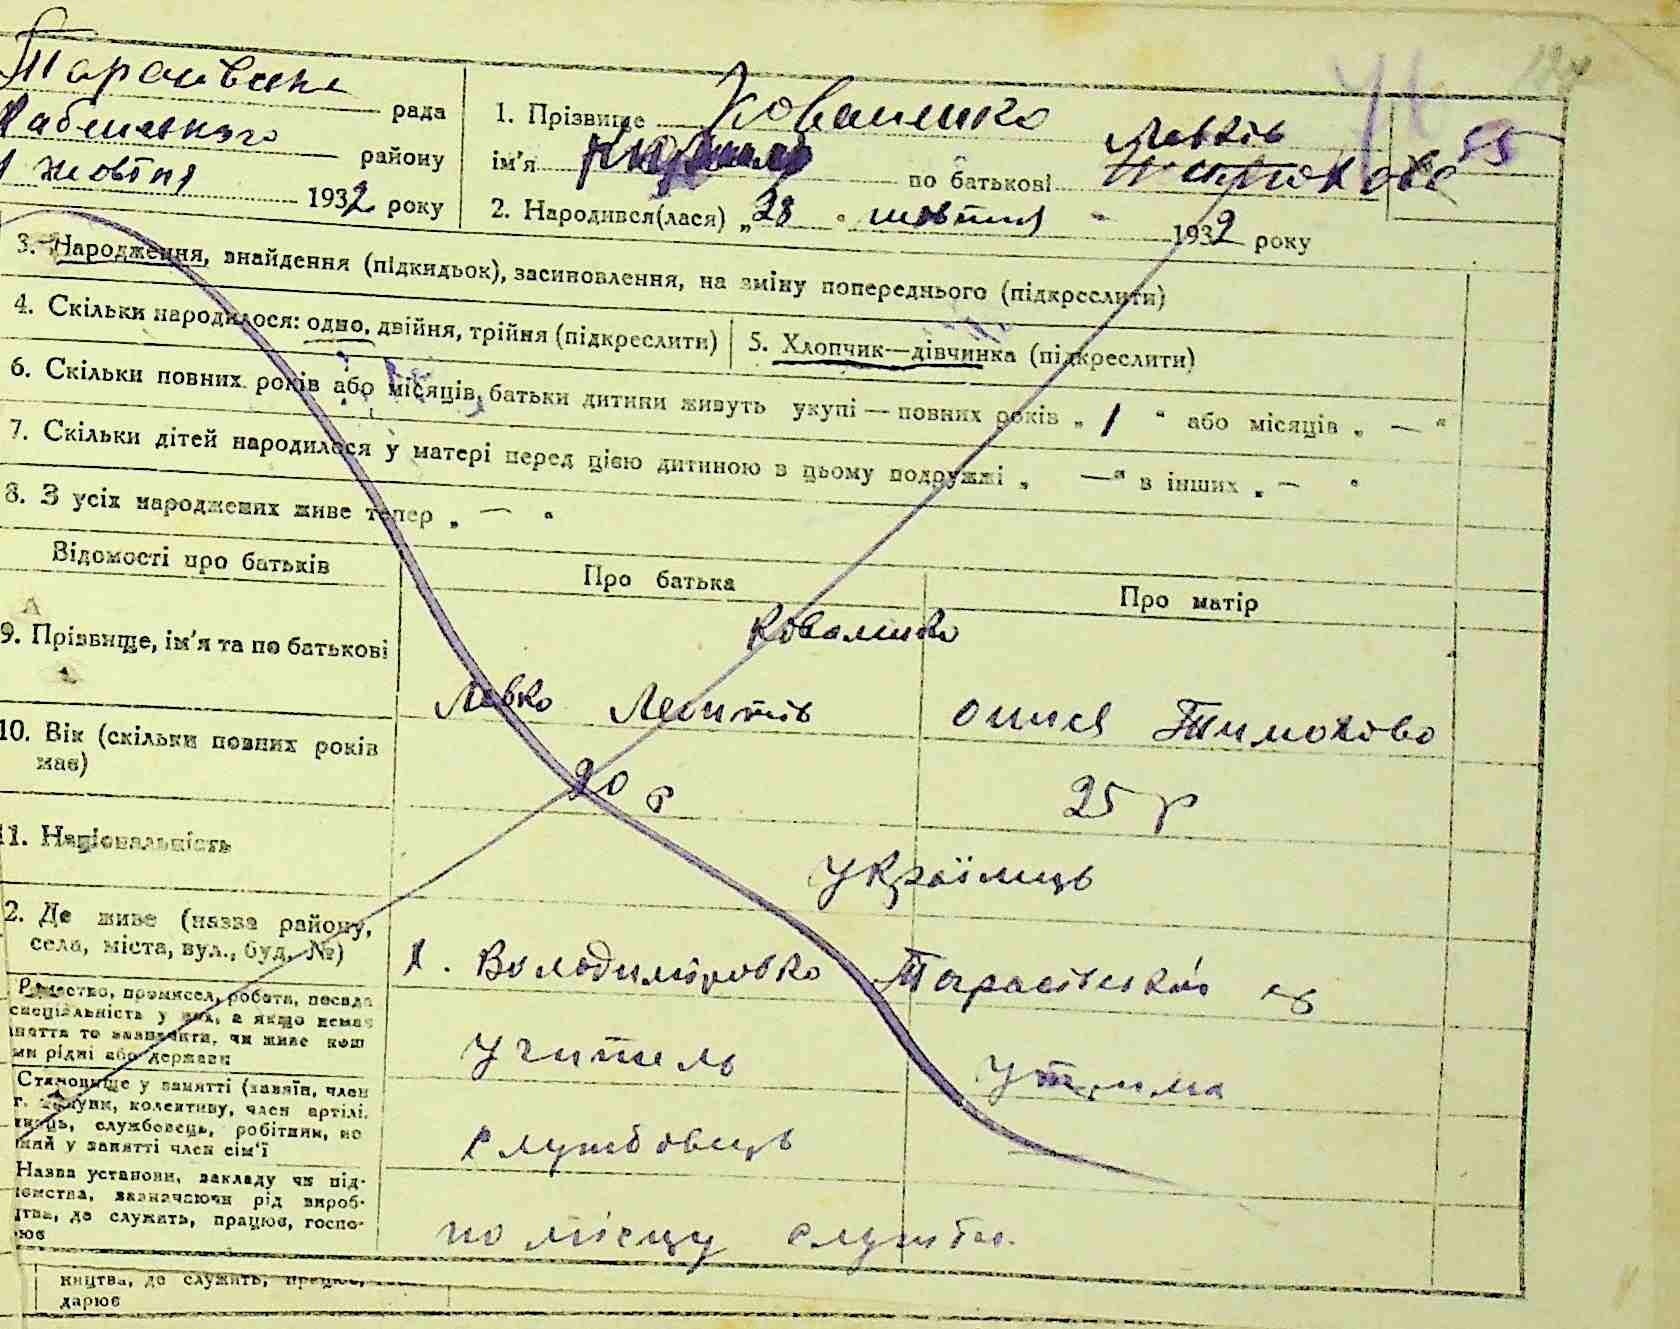 рада
району
жовтня 1932 року
55
1. Прізвище Коваленко
ім'я по батькові Левків
2. Народився(лася) „28" жовтня 1932 року
3. Народження, знайдення (підкидьок), засиновлення, на зміну попереднього (підкреслити)
4. Скільки народилося: одно, двійня, трійня (підкреслити)
5. Хлопчик—дівчинка (підкреслити)
6. Скільки повних років або місяців, батьки дитини живуть укупі — повних років „ 1 " або місяців „ — "
7. Скільки дітей народилося у матері перед цією дитиною в цьому подружжі „ —" в інших „ — "
8. З усіх народжених живе тепер „ — "
Відомості про батьків
Про батька
Про матір
9. Прізвище, ім'я та по батькові
Коваленко
Левко Леонтів
Тимохова
10. Вік (скільки повних років
має)
20 р
25 р
11. Національність
Українець
2. Де живе (назва району,
села, міста, вул., буд. №)
х. Володимировка Тарасівської с/р
Ремество, промисел, робота, посада
спеціяльність у них, а якщо немає
няття то зазначити, чи живе кош
ми рідні або держави
Учитель
Становище у занятті (хазяїн, член
колективу, член артілі,
службовець, робітник, по
у занятті член сім'ї
службовець
Назва установи, закладу чи під-
ємства, зазначаючи рід вироб-
цтва, де служить, працює, госпо-
ює
по місцу служби
ництва, де служить, працює,
дарює